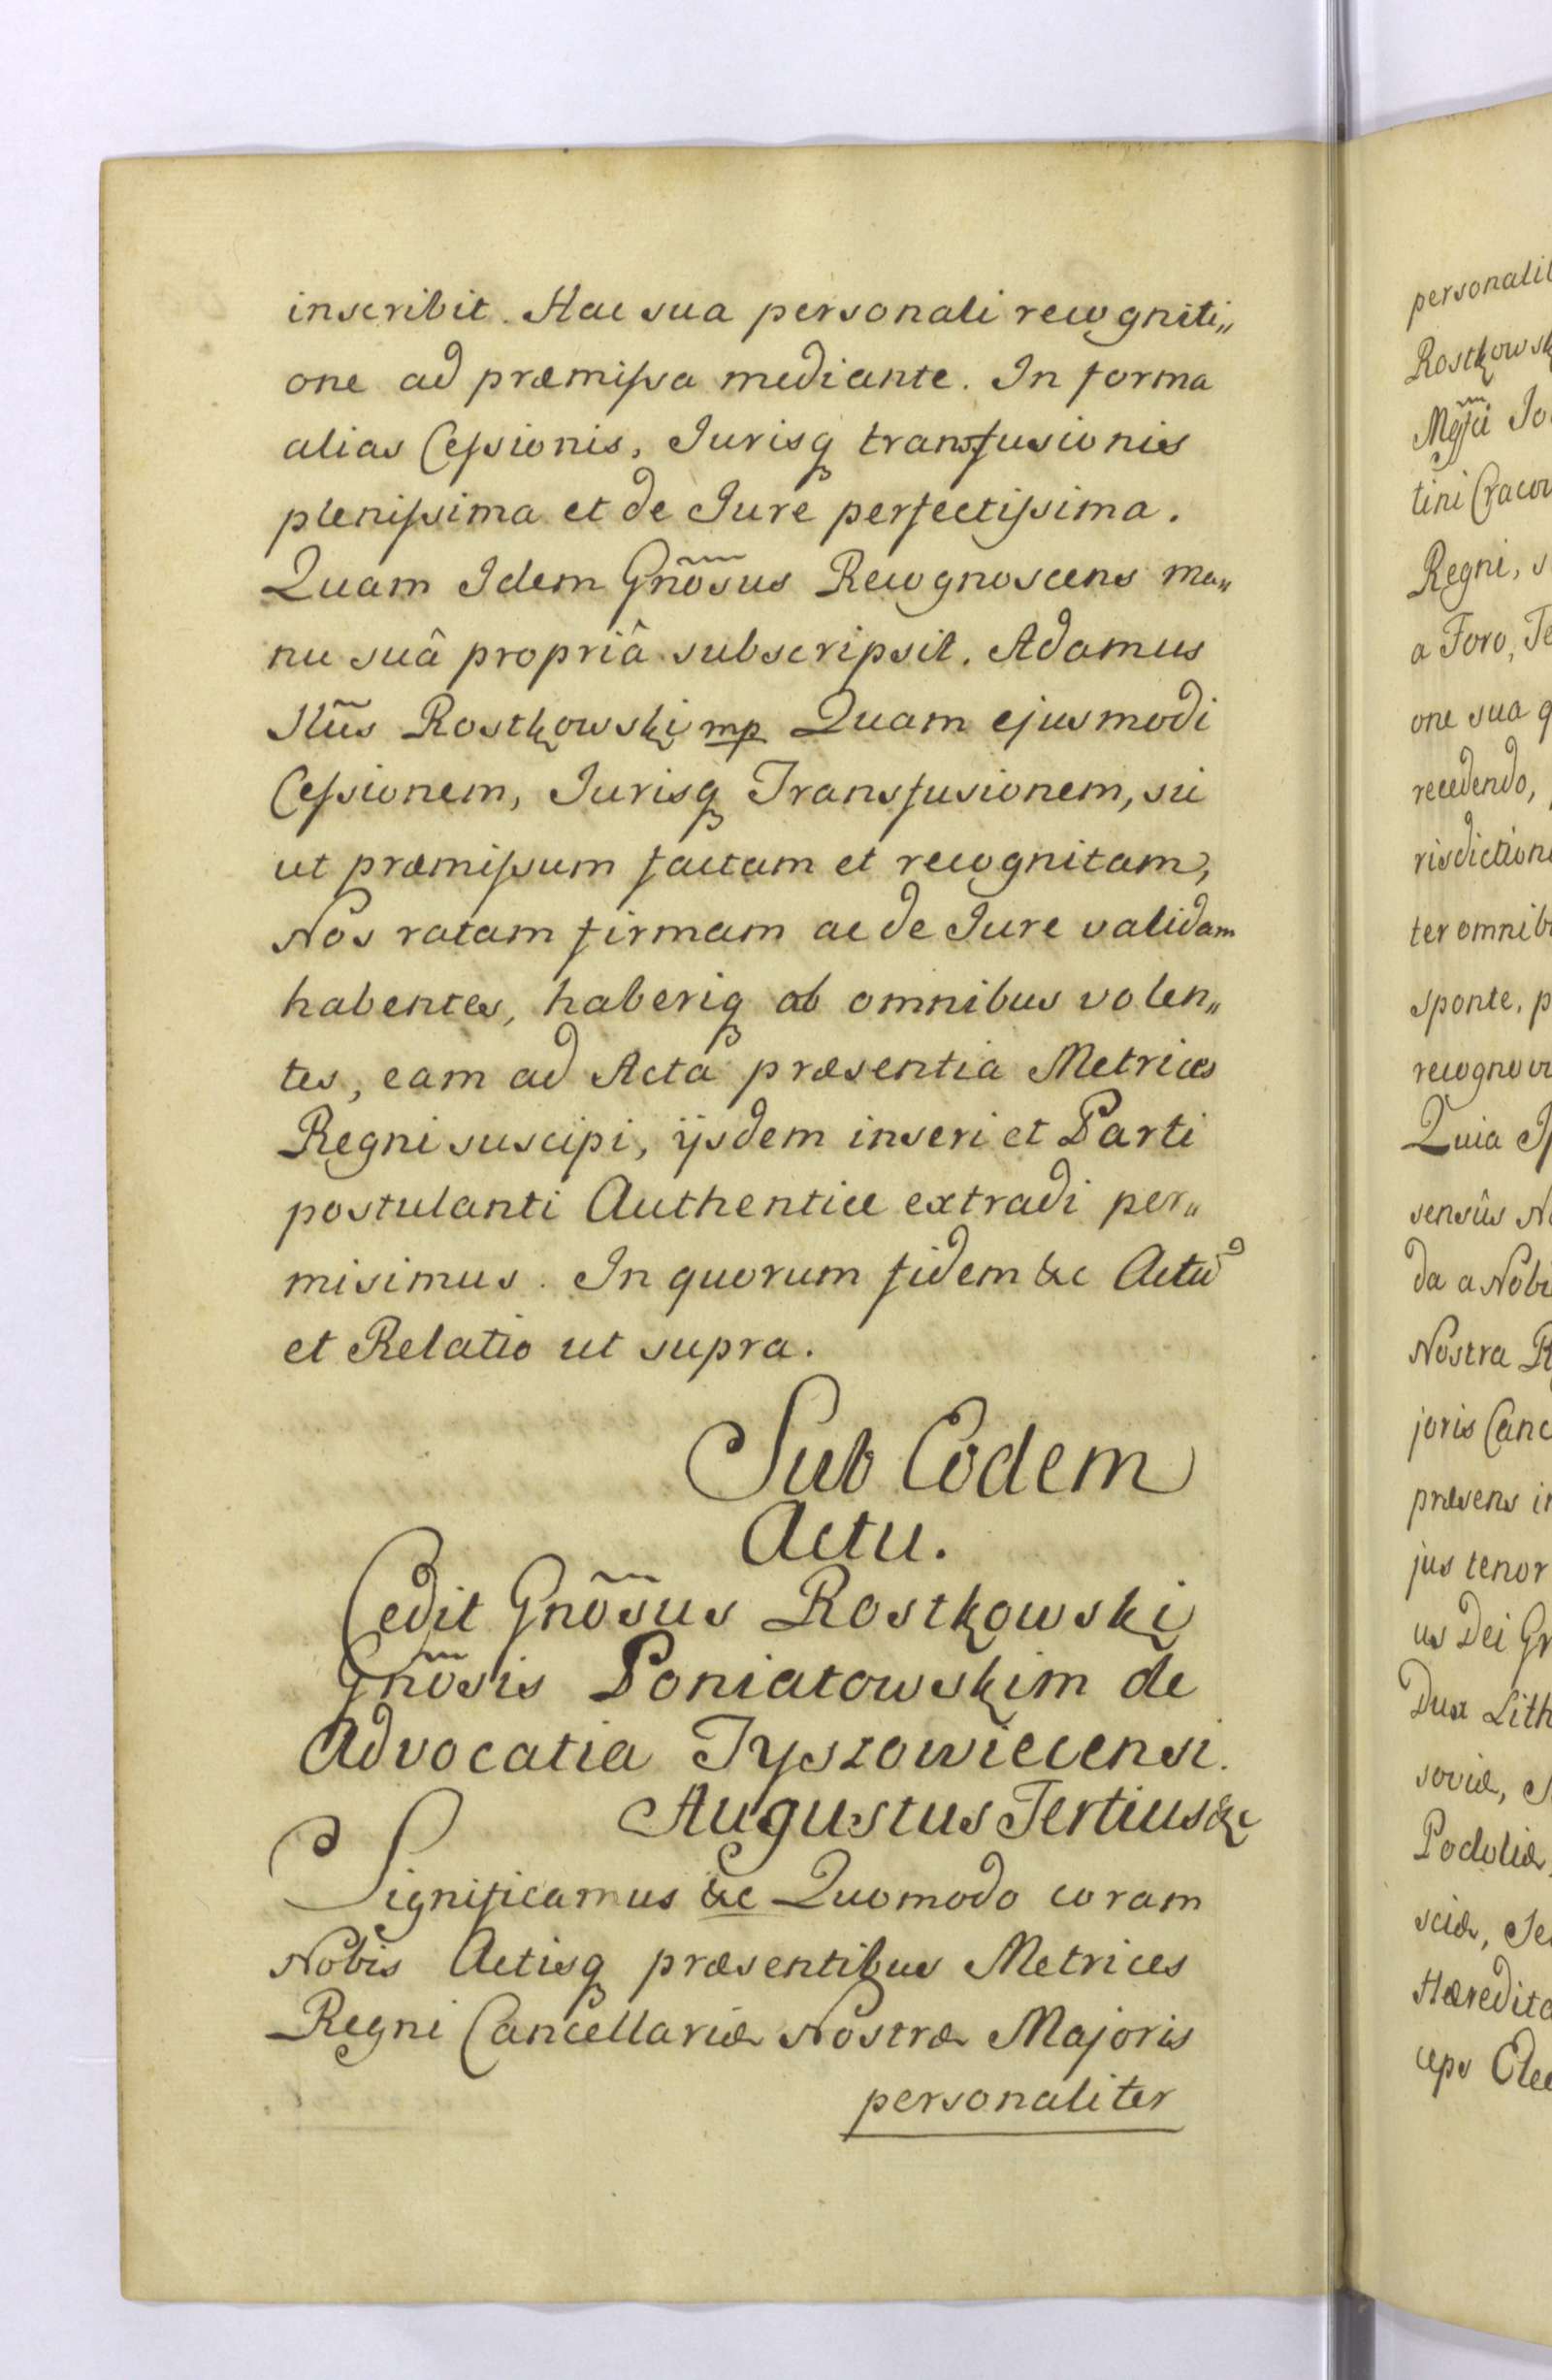 inscribit. Hac sua personali recogniti„
one ad præmißa mediante. In forma
alias Ceßionis, Jurisq transfusionis
plenißima et de Jure perfectißima.
Quam Idem Gnõsus Recognoscens ma„
nu suâ propriâ subscripsit. Adamus
Rostkowski mp Quam ejusmodi
Ceßionem, Jurisq Transfusionem, sic
ut præmißum factam et recognitam,
Nos ratam firmam ac de Jure validam
habentes, haberiq ab omnibus volen„
tes, eam ad Acta præsentia Metrices
Regni suscipi, ijsdem inseri et Parti
postulanti Authentice extradi per„
misimus. In quorum fidem &c Actu
et Relatio ut supra.
Sub Eodem
Actu.
Cedit Gnõsus Rostkowski
Gnõsis Poniatowskim de
Advocatia Tyszowiecensi.
Augustus Tertius &c
Significamus &c Quomodo coram
Nobis Actisq præsentibus Metrices
Regni Cancellariæ Nostræ Majoris
personaliter
Rostkowsk
Regni, s
a Foro, Te
one sua q
recedendo,
risdiction
ter omnib
sponte, p
Quia Ip
sensûs No
da a Nobi
Nostra R
joris Canc
præsens in
jus tenor
us Dei Gr
Dux Lith
soviæ, S
Podoliæ,
sciæ, Se
Hæredita
ceps Elec